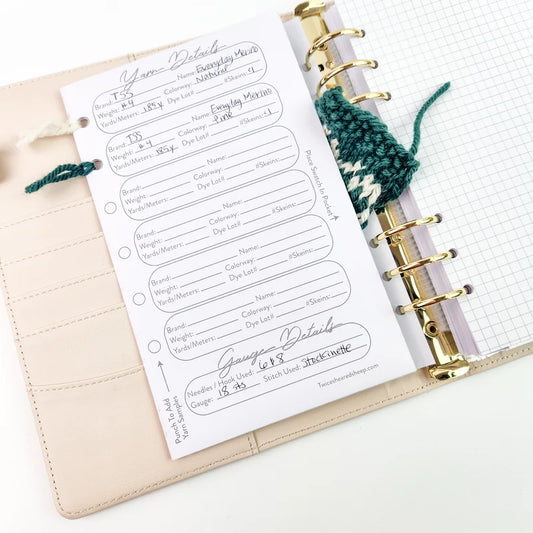 Yarn Details
Brand: TSS Name: Everyday Merino
Weight: #4 Colorway: Natural
Yards/Meters: 185y Dye Lot# #Skeins: <1
Brand: TSS Name: Everyday Merino
Weight: #4 Colorway: Pine
Yards/Meters: 185y Dye Lot# #Skeins: <1
Brand: Name:
Weight: Colorway:
Yards/Meters: Dye Lot# #Skeins:
Brand: Name:
Weight: Colorway:
Yards/Meters: Dye Lot# #Skeins:
Brand: Name:
Weight: Colorway:
Yards/Meters: Dye Lot# #Skeins:
Brand: Name:
Weight: Colorway:
Yards/Meters: Dye Lot# #Skeins:
Place Swatch In Pocket
Gauge Details
Needles / Hook Used: 6 & 8
Gauge: 18 sts Stitch Used: Stockinette
Punch To Add
Yarn Samples
Twicesheeredsheep.com